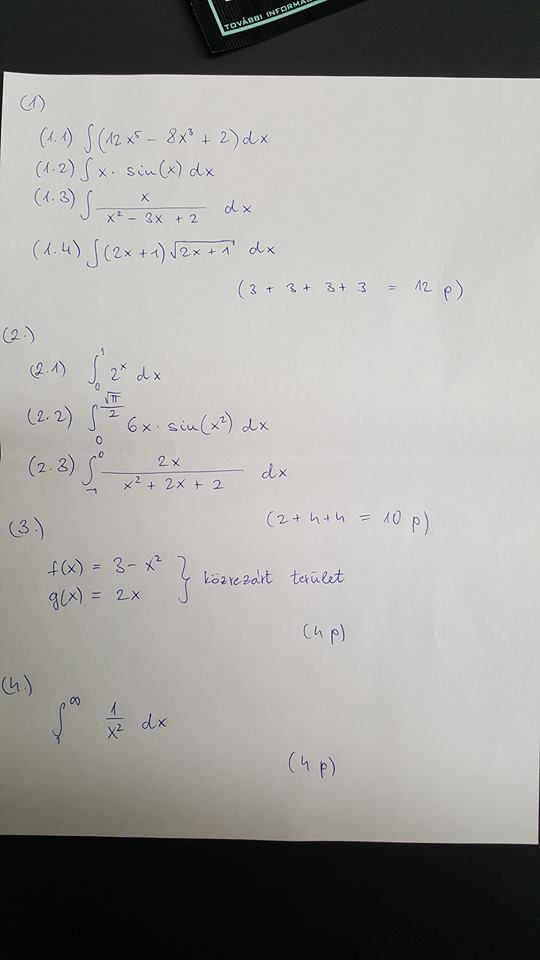 TOVÁBBI INFORMÁ
(1)
(1.1) ∫(12x⁵ - 8x³ + 2)dx
(1.2) ∫x · sin(x) dx
(1.3) ∫ x / (x² - 3x + 2) dx
(1.4) ∫(2x+1)√(2x+1) dx
(3 + 3 + 3 + 3 = 12 p)
(2.)
(2.1) ∫₀¹ 2ˣ dx
(2.2) ∫₀^(√π/2) 6x · sin(x²) dx
(2.3) ∫₋₁⁰ 2x / (x² + 2x + 2) dx
(2+4+4 = 10 p)
(3.)
f(x) = 3 - x²
g(x) = 2x } közrezárt terület
(4 p)
(4.)
∫₁^∞ 1/x² dx
(4 p)